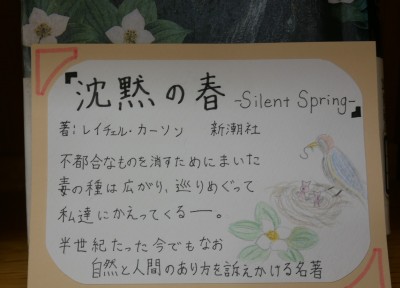 『沈黙の春 -Silent Spring-』
著:レイチェル・カーソン 新潮社
不都合なものを消すためにまいた
毒の種は広がり、巡りめぐって
私達にかえってくるー。
半世紀たった今でもなお
自然と人間のあり方を訴えかける名著